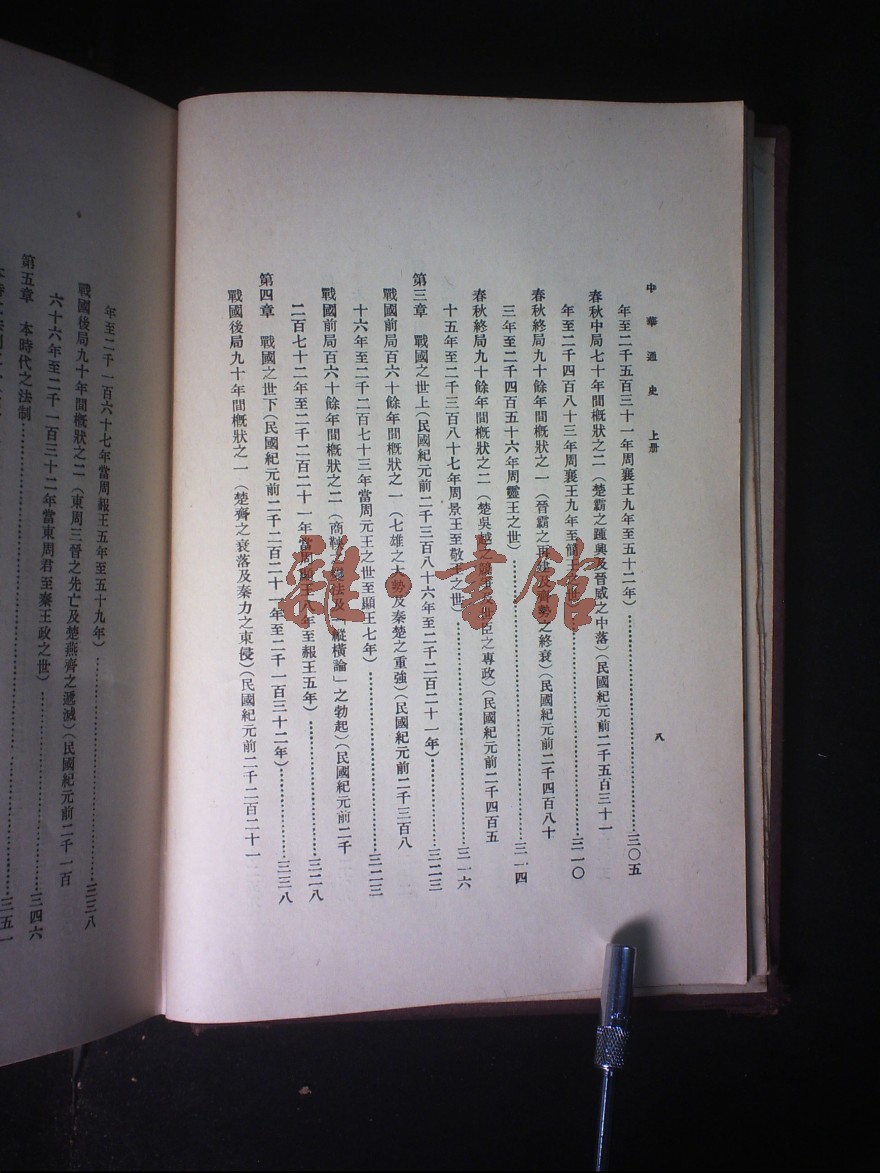 中華通史 上册 八
年至二千五百三十一年周襄王九年至五十二年)……三〇五
春秋中局七十年間概狀之二(楚霸之踵興及晉威之中落)(民國紀元前二千五百三十一
年至二千四百八十三年周襄王九年至簡王之世)……三一〇
春秋終局九十餘年間概狀之一(晉霸之再建及齊勢之終衰)(民國紀元前二千四百八十
三年至二千四百五十六年周靈王之世)……三一四
春秋終局九十餘年間概狀之二(楚吳越之 臣之專政)(民國紀元前二千四百五
十五年至二千三百八十七年周景王至敬王之世)……三一六
第三章 戰國之世上(民國紀元前二千三百八十六年至二千二百二十一年)……三二三
戰國前局百六十餘年間概狀之一(七雄之大勢及秦楚之重強)(民國紀元前二千三百八
十六年至二千二百七十三年當周元王之世至顯王七年)……三二三
戰國前局百六十餘年間概狀之二(商鞅之變法及「縱橫論」之勃起)(民國紀元前二千
二百七十二年至二千二百二十一年當周顯王八年至赧王五年)……三二八
第四章 戰國之世下(民國紀元前二千二百二十一年至二千一百三十二年)……三三八
戰國後局九十年間概狀之一(楚齊之衰落及秦力之東侵)(民國紀元前二千二百二十一
年至二千一百六十七年當周赧王五年至五十九年)……三三八
戰國後局九十年間概狀之二(東周三晉之先亡及楚燕齊之遞滅)(民國紀元前二千一百
六十六年至二千一百三十二年當東周君至秦王政之世)……三四六
第五章 本時代之法制……三五一
雜·書館